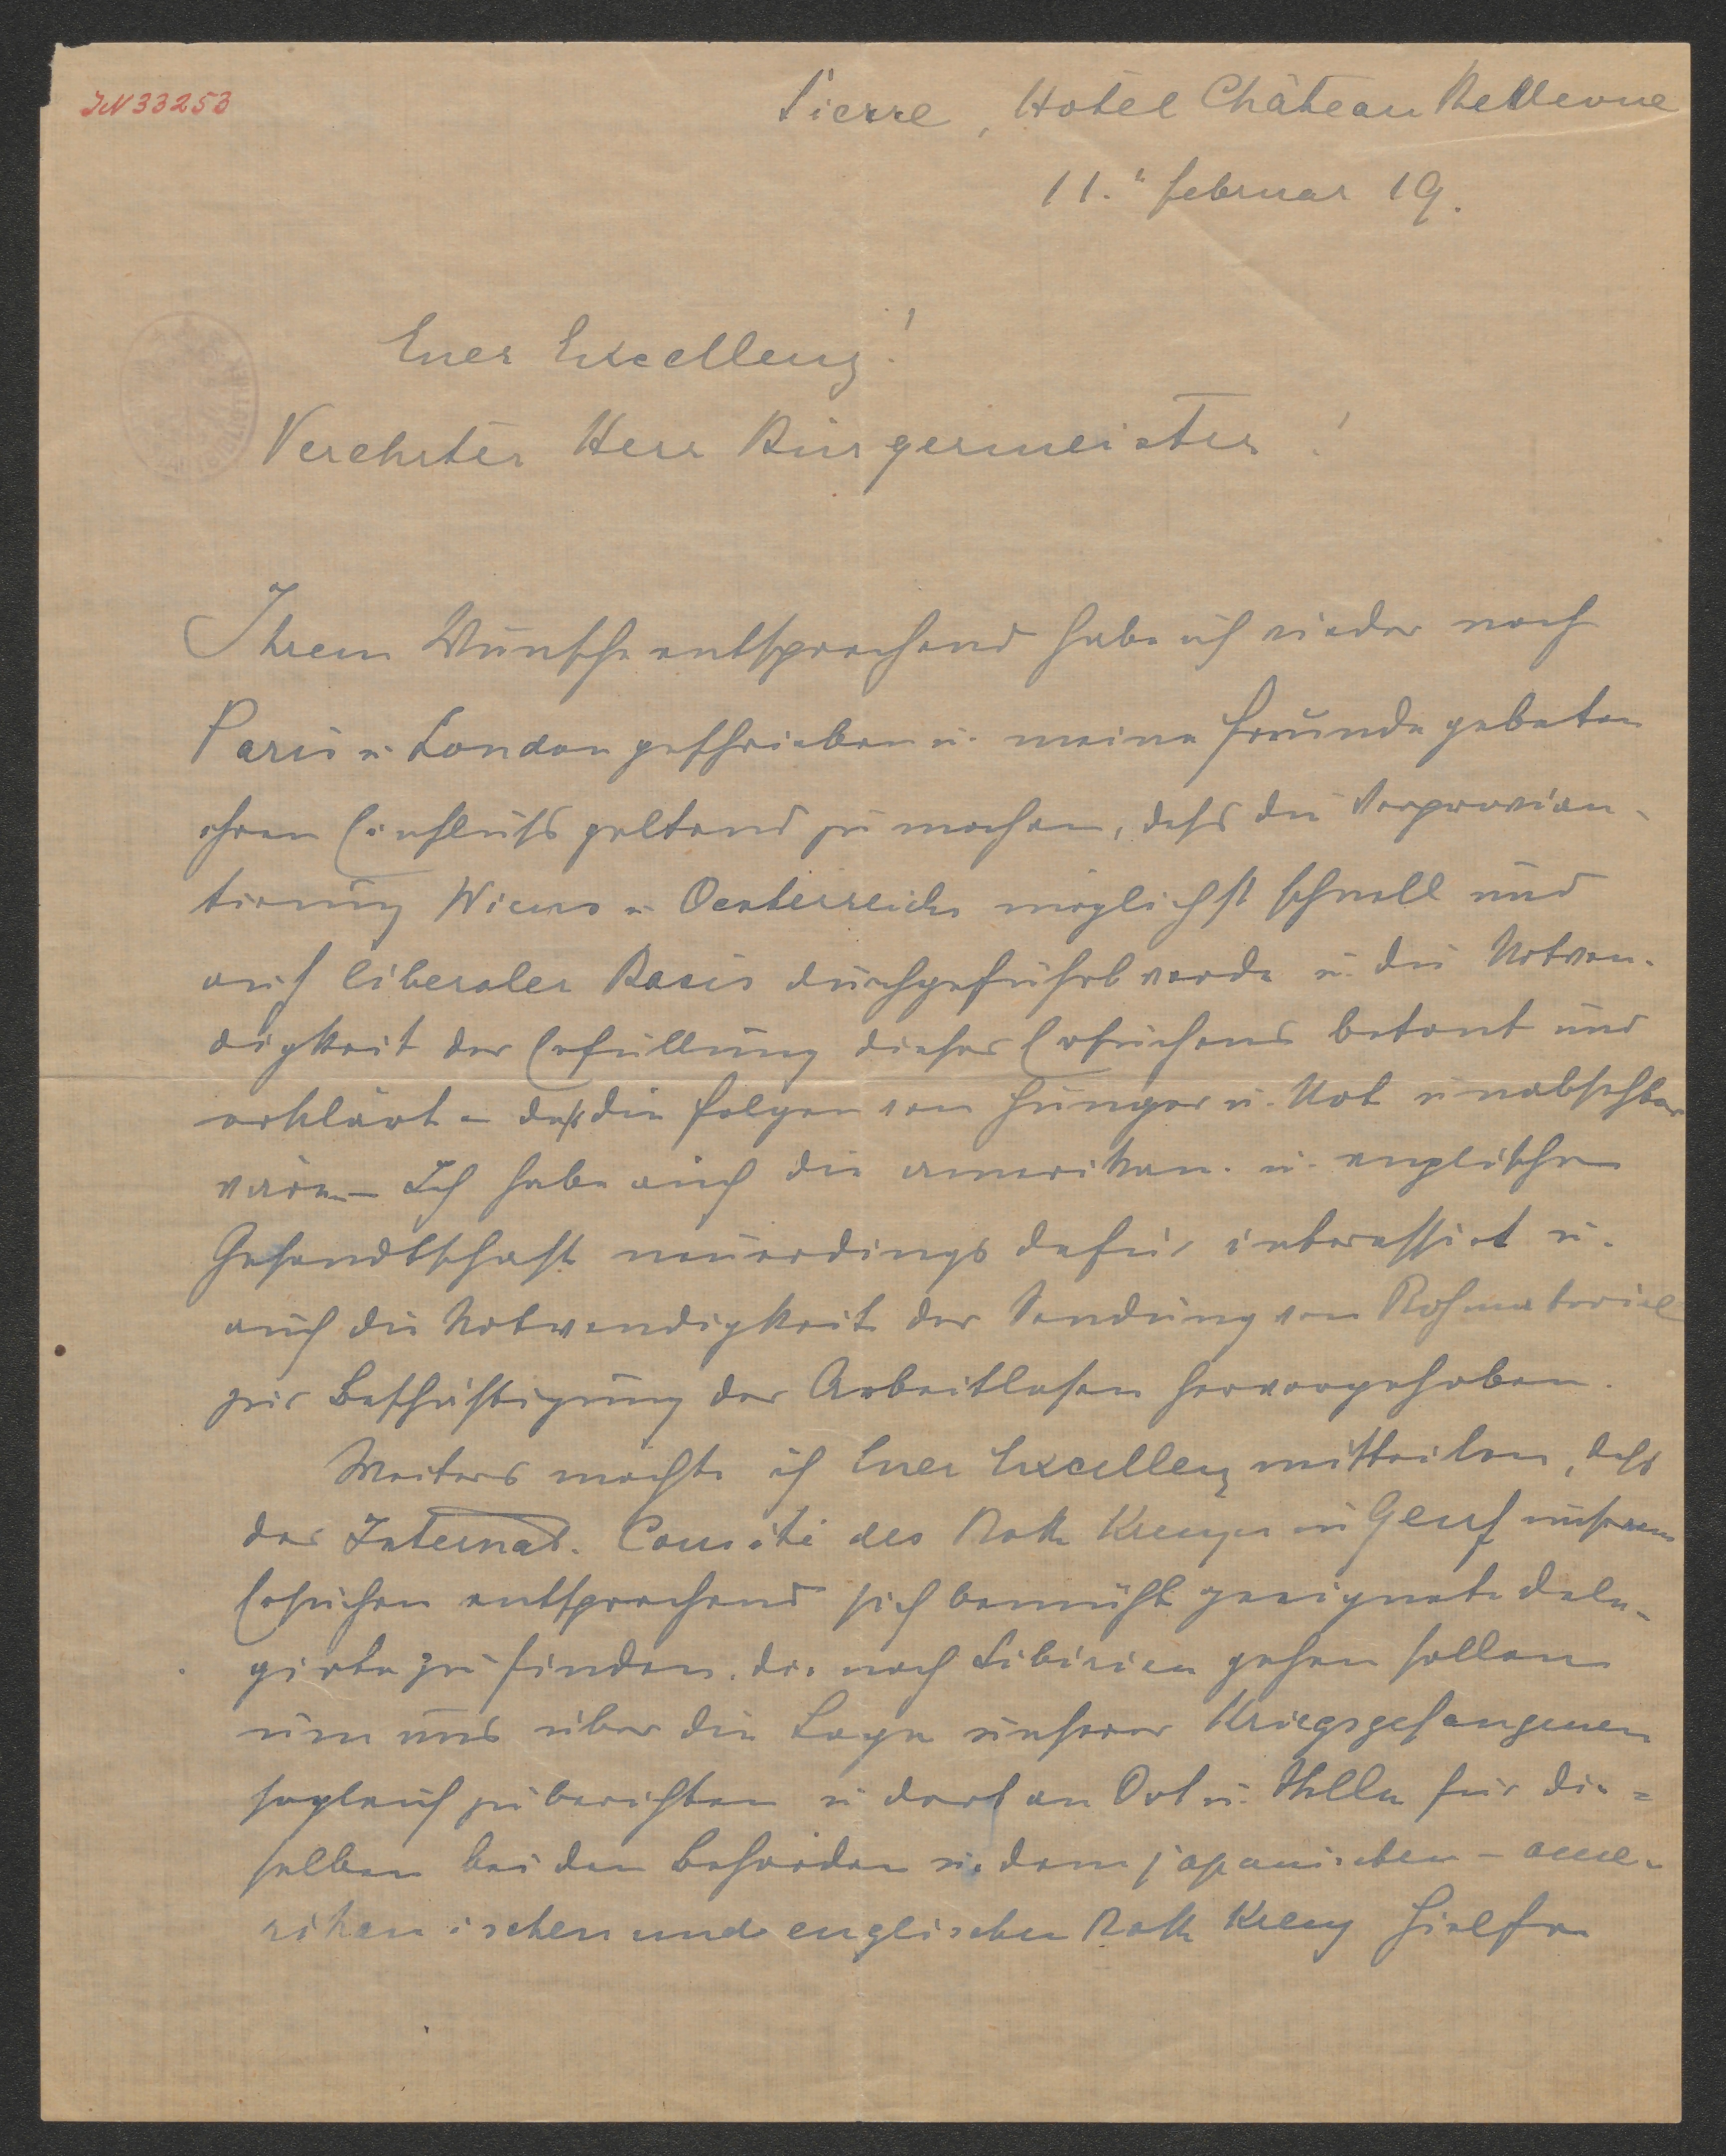 IN 33253
Sierre, Hotel Château Bellevue
11. Februar 19.
Euer Excellenz!
Verehrter Herr Bürgermeister!
Ihrem Wunsche entsprechend habe ich wieder nach
Paris u. London geschrieben u. meine Freunde gebeten
ihren Einfluss geltend zu machen, dass die Verprovian-
tierung Wiens u. Oesterreichs möglichst schnell und
auf liberaler Basis durchgeführt werde u. die Notwen-
digkeit der Erfüllung dieses Ersuchens betont und
erklärt – daß die Folgen von Hunger u. Not unabsehbar
wären – Ich habe auch die amerikan. u. englische
Gesandtschaft neuerdings dafür interessirt u.
auch die Notwendigkeit der Sendung von Rohmaterial
zur Beschäftigung der Arbeitlosen hervorgehoben.
Weiters möchte ich Euer Excellenz mitteilen, dass
das Internat. Comité des Roth Kreuzes in Genf unserem
Ersuchen entsprechend sich bemüht geeignete Dele-
girte zu finden, die nach Sibirien gehen sollen
um uns über die Lage unserer Kriegsgefangenen
sogleich zu berichten u dort an Ort u. Stelle für die=
selben bei den Behörden u. dem japanischen – ame-
rikanischen und englischen Roth Kreuz Hielfe